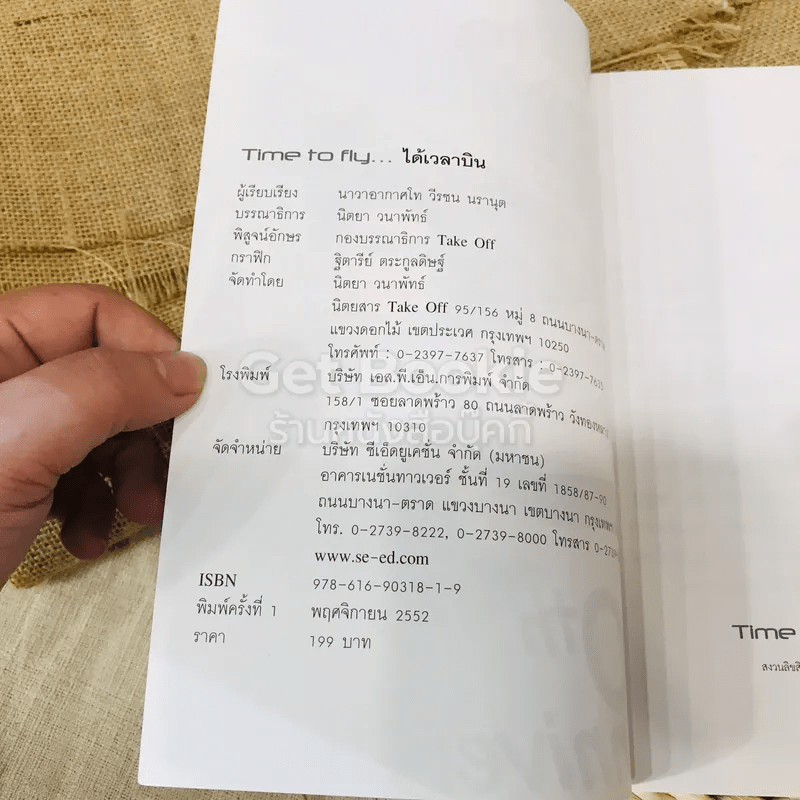 Time to fly... ได้เวลาบิน
ผู้เรียบเรียง นาวาอากาศโท วีรชน นรานุต
บรรณาธิการ นิตยา วนาพัทธ์
พิสูจน์อักษร กองบรรณาธิการ Take Off
กราฟิก ฐิตารีย์ ตระกูลดิษฐ์
จัดทำโดย นิตยา วนาพัทธ์
นิตยสาร Take Off 95/156 หมู่ 8 ถนนบางนา-ตราด
แขวงดอกไม้ เขตประเวศ กรุงเทพฯ 10250
โทรศัพท์ : 0-2397-7637 โทรสาร : 0-2397-7635
โรงพิมพ์ บริษัท เอส.พี.เอ็น.การพิมพ์ จำกัด
158/1 ซอยลาดพร้าว 80 ถนนลาดพร้าว วังทองหลาง
กรุงเทพฯ 10310
จัดจำหน่าย บริษัท ซีเอ็ดยูเคชั่น จำกัด (มหาชน)
อาคารเนชั่นทาวเวอร์ ชั้นที่ 19 เลขที่ 1858/87-90
ถนนบางนา-ตราด แขวงบางนา เขตบางนา กรุงเทพฯ
โทร. 0-2739-8222, 0-2739-8000 โทรสาร
www.se-ed.com
ISBN 978-616-90318-1-9
พิมพ์ครั้งที่ 1 พฤศจิกายน 2552
ราคา 199 บาท
Get Bookie
ร้านหนังสือบุ๊คกี้
Time